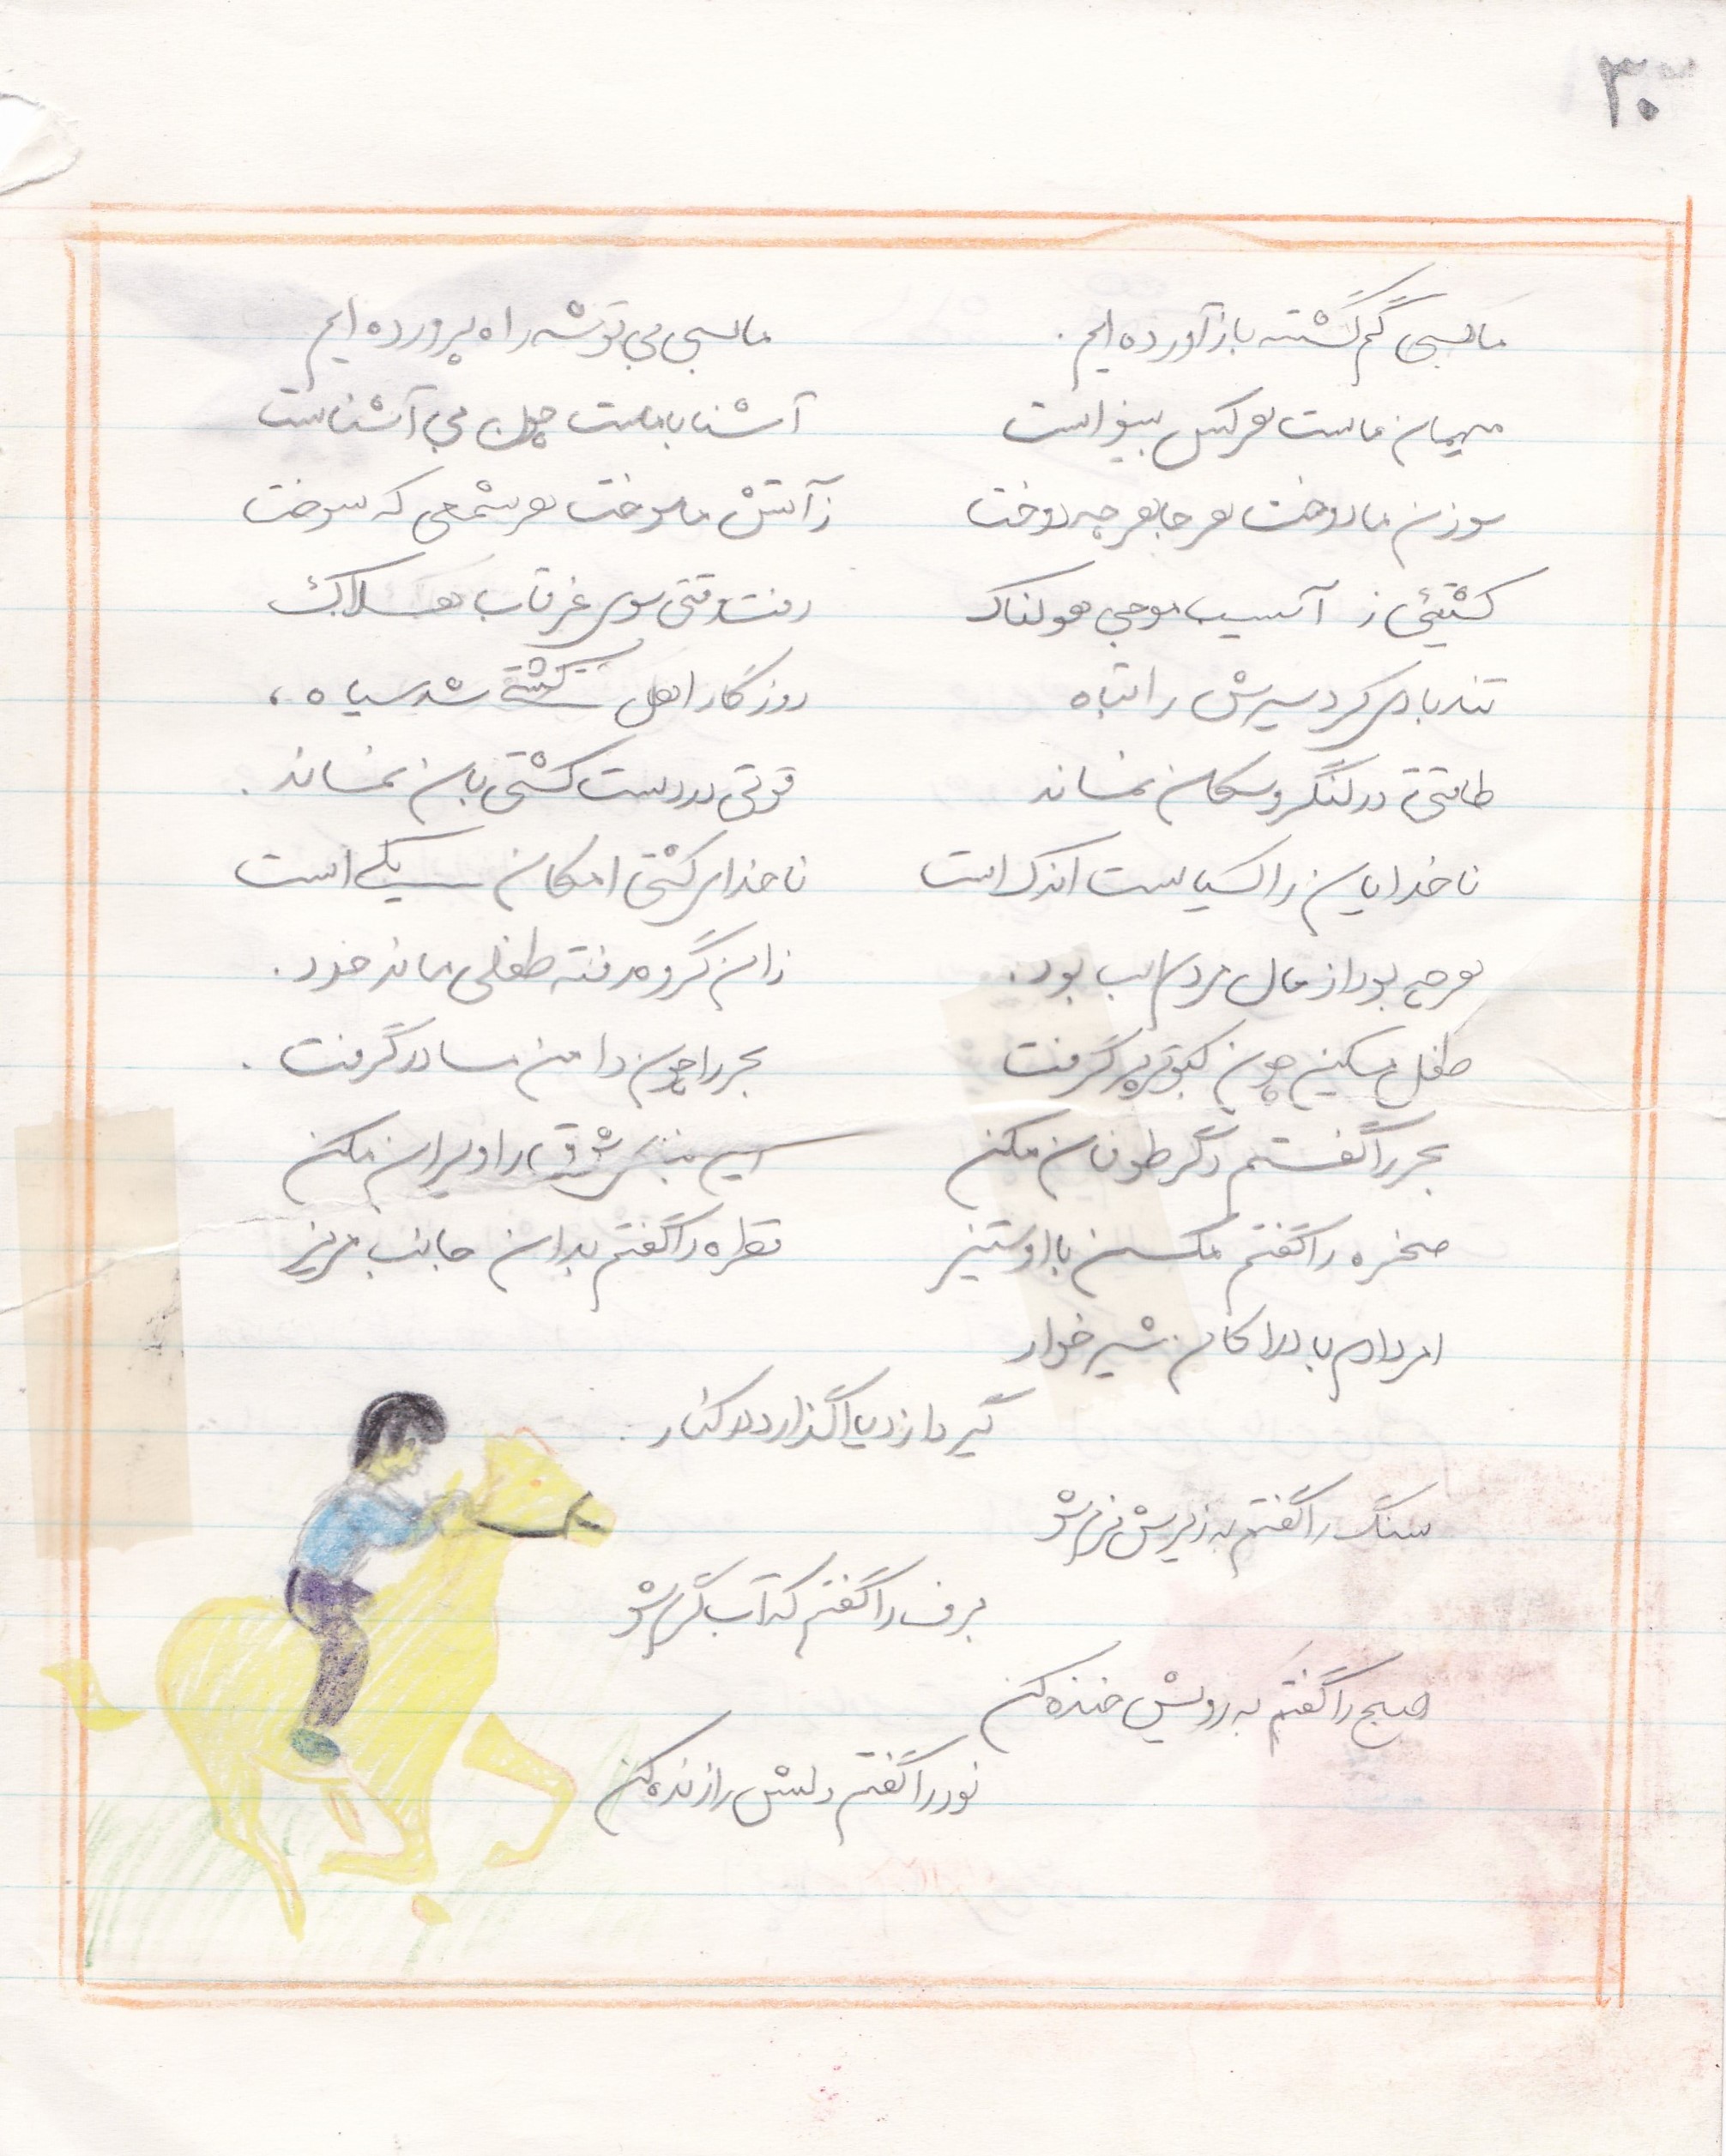 ۳۰
ما بسی گم گشته باز آورده ایم. ما بسی بی توشه را ه پرورده ایم
میهمان ماست هر کس بینواست آشنا با ماست چون بی آشناست
سوزن ما دوخت هر جا هر چه دوخت ز آتش ما سوخت هر شمعی که سوخت
کشتیئی ز آسیب موجی هولناک رفت وقتی سوی غرقاب هلاک
تند بادی کرد سیرش را تباه روزگار اهل کشتی شد سیاه ،
طاقتی در لنگر و سکان نماند قوتی در دست کشتی بان نماند .
نا خدایان را کیاست اندک است نا خدای کشتی امکان یکی است
هر چه بود از مال مردم آب بود. زان گروه رفته طفلی ماند خرد .
طفل مسکین چون کبوتر پر گرفت بحر را چون دامن مادر گرفت .
بحر را گفتم دگر طوفان مکن این بنای شوق را ویران مکن
صخره را گفتم مکن با او ستیز قطره را گفتم بدان جانب مریز
امر دادم باد را کان شیر خوار
گیرد از دریا گذارد در کنار .
سنگ را گفتم به زیرش نرم شو
برف را گفتم که آب گرم شو
صبح را گفتم به رویش خنده کن
نور را گفتم دلش را زنده کن